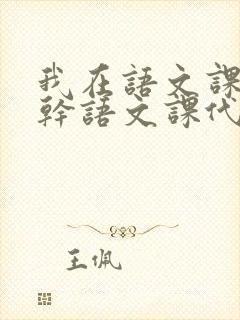 我在語文課
幹語文課代
王佩